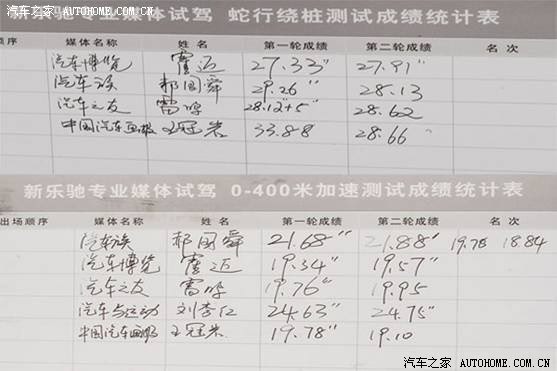 汽车之家 AUTOHOME.COM.CN
新乐驰专业媒体试驾 蛇行绕桩测试成绩统计表
顺序 媒体名称 姓名 第一轮成绩 第二轮成绩 名次
汽车博览 霍迈 27.33" 27.91"
汽车族 郝国舜 29.26" 28.13
汽车之友 雷鸣 28.12+5" 28.62
中国汽车画报 王冠岩 33.88 28.66
新乐驰专业媒体试驾 0-400米加速测试成绩统计表
出场顺序 媒体名称 姓名 第一轮成绩 第二轮成绩 名次
汽车族 郝国舜 21.68" 21.88" 19.78 18.84
汽车博览 霍迈 19.34" 19.57"
汽车之友 雷鸣 19.76" 19.95
汽车与运动 刘李仁 24.63" 24.75"
中国汽车画报 王冠岩 19.78" 19.10
汽车之家 AUTOHOME.COM.CN